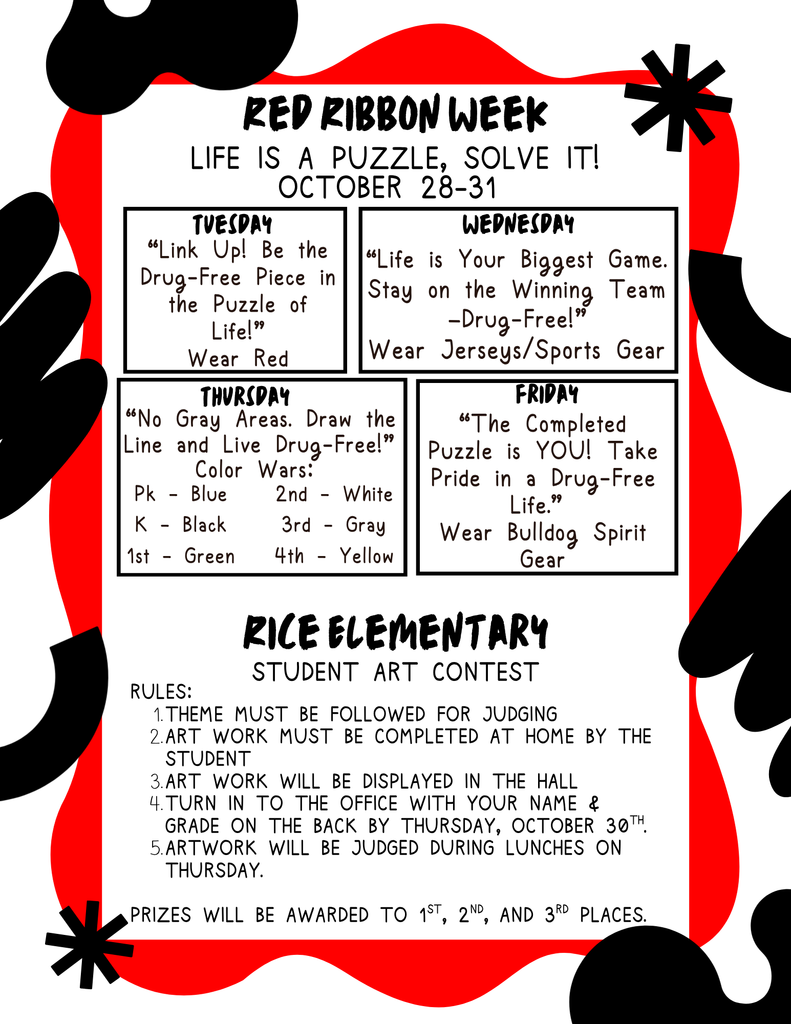 RED RIBBON WEEK
LIFE IS A PUZZLE, SOLVE IT!
OCTOBER 28-31
TUESDAY
“Link Up! Be the
Drug-Free Piece in
the Puzzle of
Life!”
Wear Red
WEDNESDAY
“Life is Your Biggest Game.
Stay on the Winning Team
-Drug-Free!”
Wear Jerseys/Sports Gear
THURSDAY
“No Gray Areas. Draw the
Line and Live Drug-Free!”
Color Wars:
Pk - Blue
K - Black
1st - Green
2nd - White
3rd - Gray
4th - Yellow
FRIDAY
“The Completed
Puzzle is YOU! Take
Pride in a Drug-Free
Life.”
Wear Bulldog Spirit
Gear
RICE ELEMENTARY
STUDENT ART CONTEST
RULES:
1. THEME MUST BE FOLLOWED FOR JUDGING
2. ART WORK MUST BE COMPLETED AT HOME BY THE
STUDENT
3. ART WORK WILL BE DISPLAYED IN THE HALL
4. TURN IN TO THE OFFICE WITH YOUR NAME &
GRADE ON THE BACK BY THURSDAY, OCTOBER 30TH.
5. ARTWORK WILL BE JUDGED DURING LUNCHES ON
THURSDAY.
PRIZES WILL BE AWARDED TO 1ST, 2ND, AND 3RD PLACES.